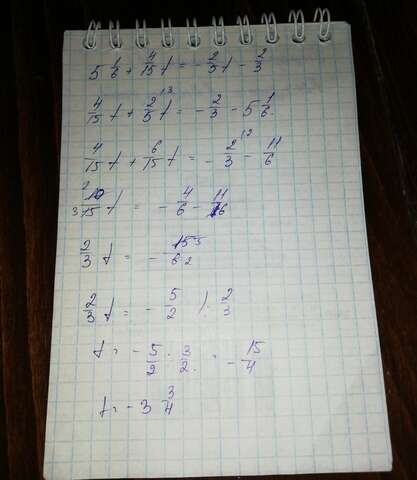 5 1/6 + 4/15 t = - 2/5 t - 2/3
4/15 t + 2/5 t = - 2/3 - 5 1/6
4/15 t + 6/15 t = - 2/3 - 11/6
10/15 t = - 4/6 - 11/6
2/3 t = - 15/6
2/3 t = - 5/2 : 2/3
t = - 5/2 · 3/2 = - 15/4
t = - 3 3/4